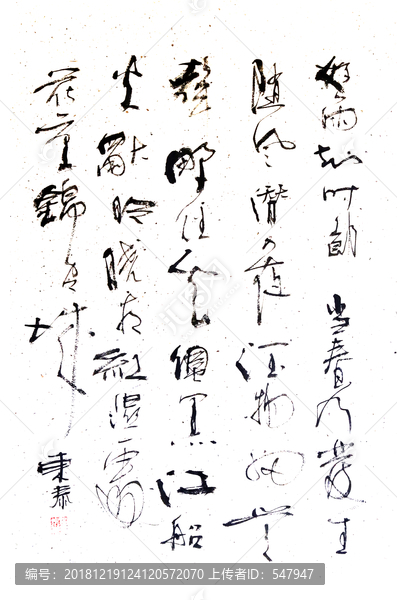 好雨知时節当春乃發生
随风潜入夜润物细无
聲野径云俱黑江船
火獨明晓看红湿處
花重錦官城
東泰
编号：20181219124120572070 上传者ID：547947